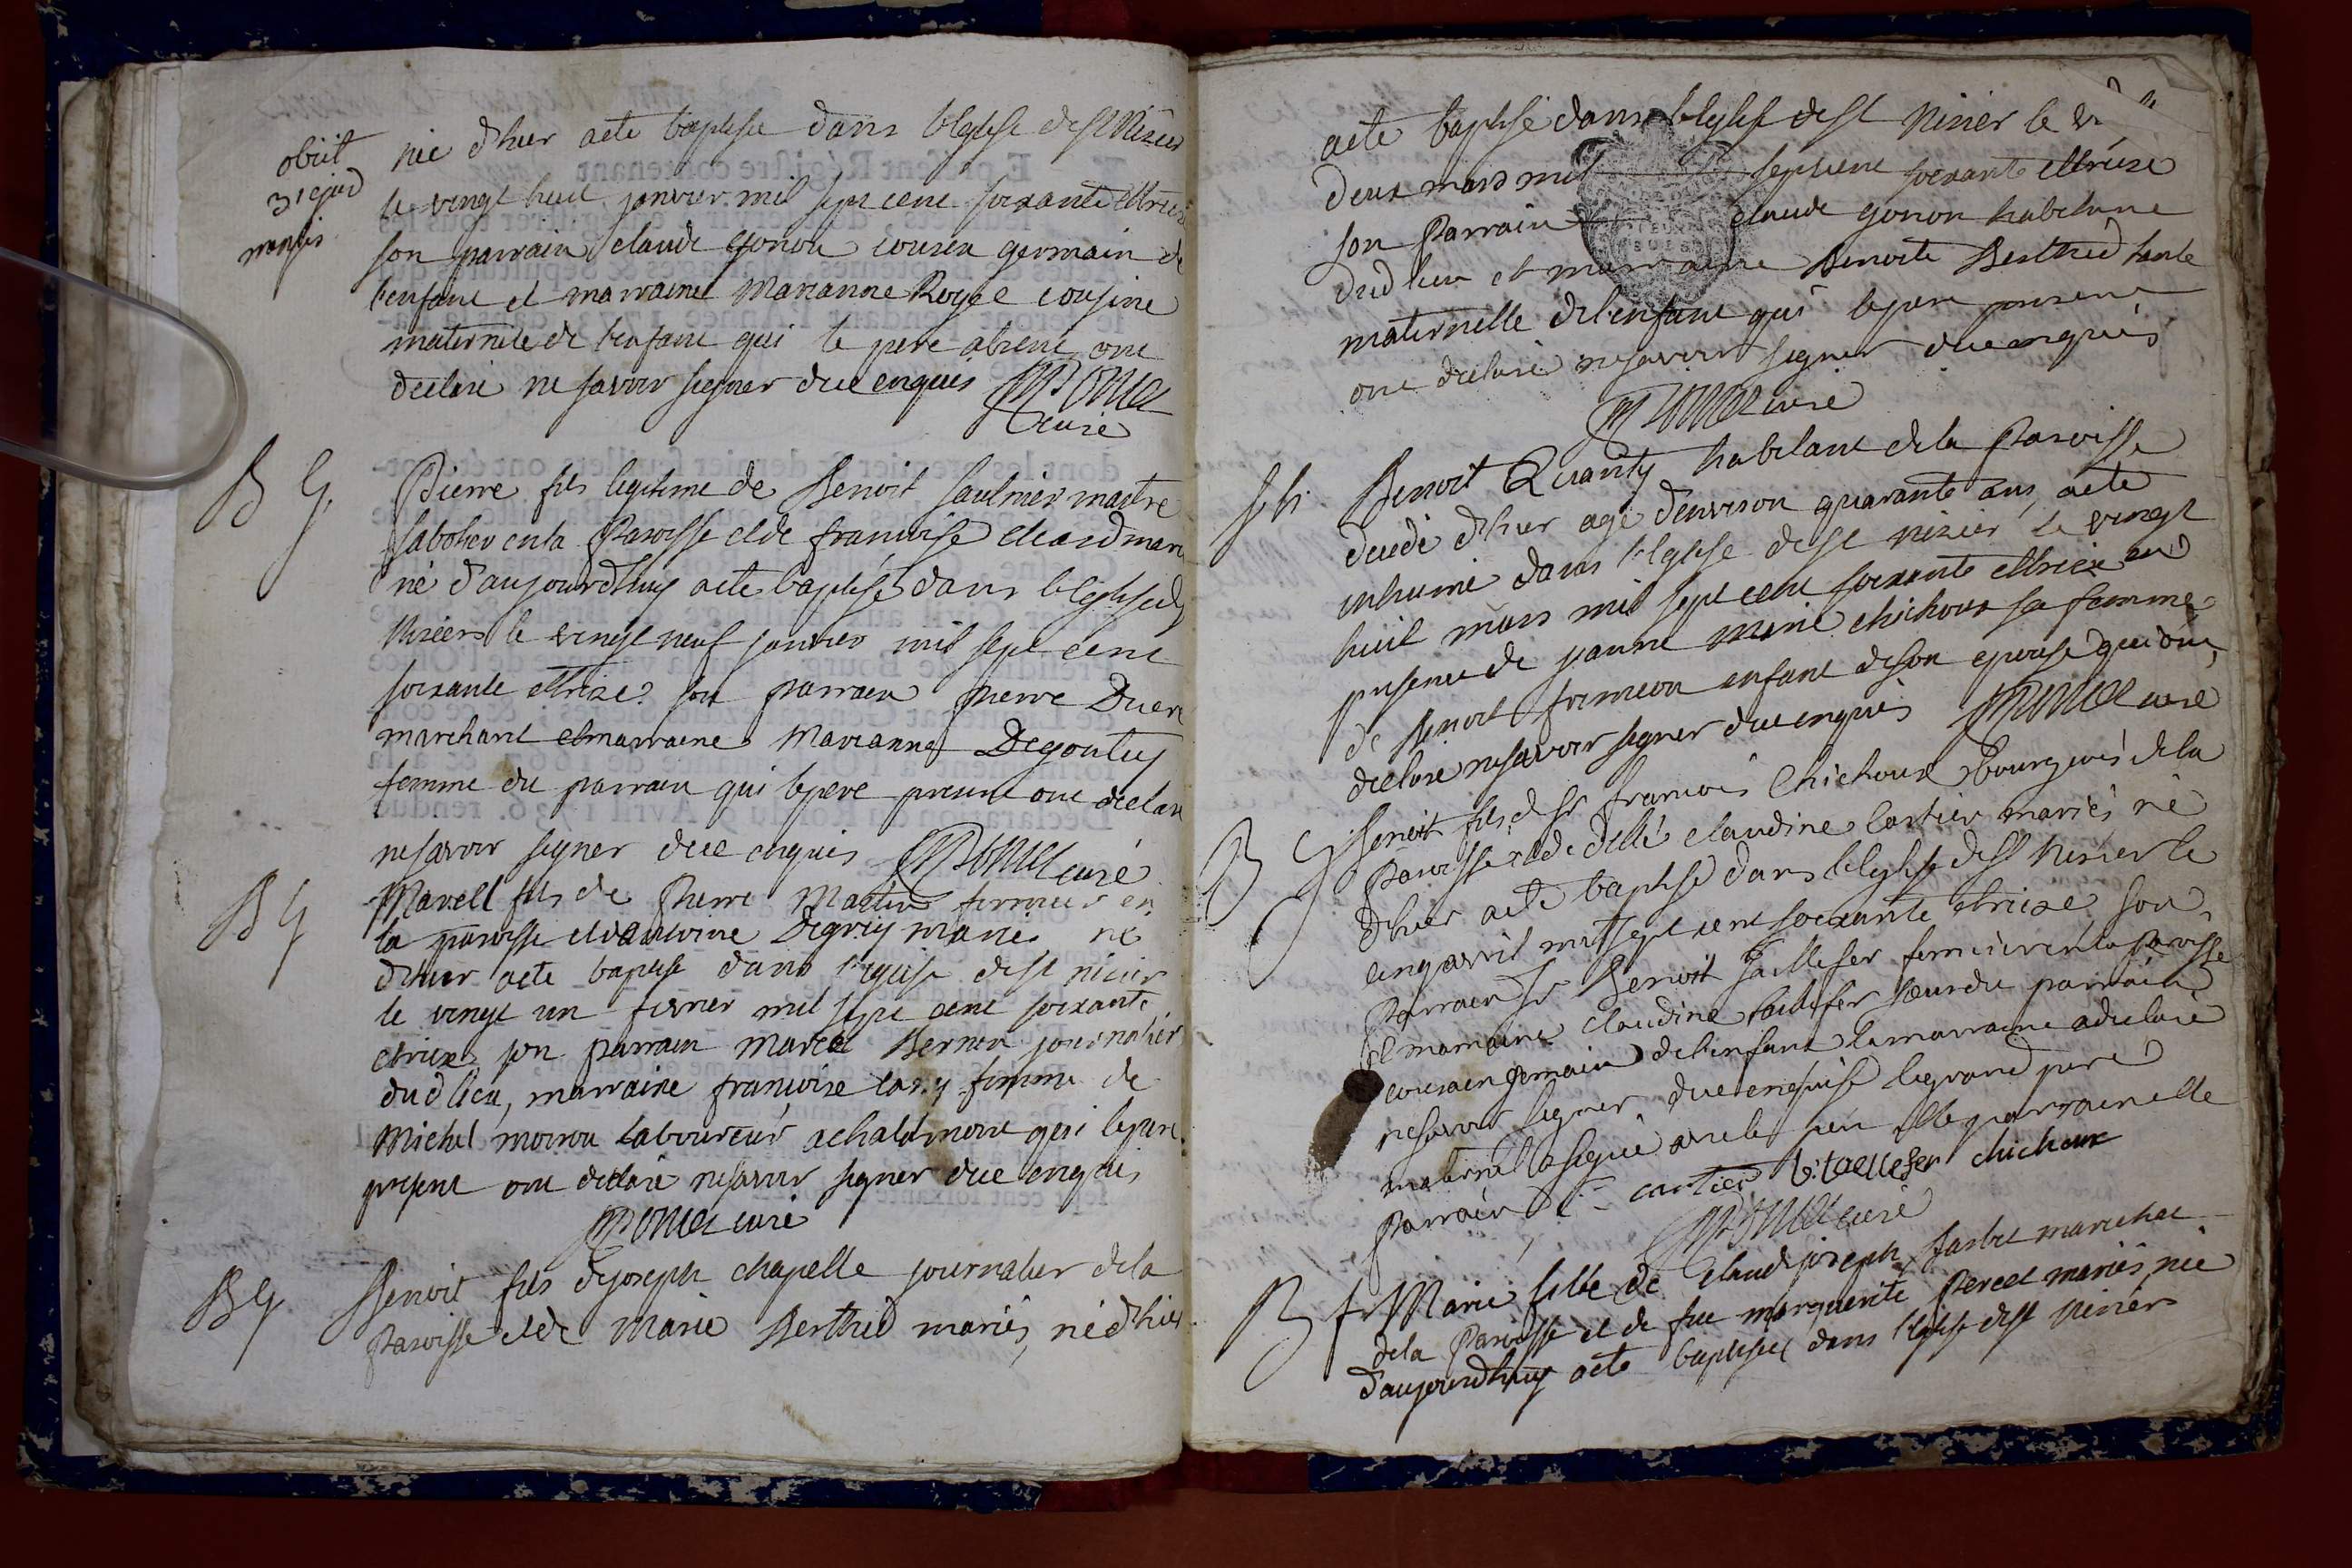 obiit
31 ejusd
mensis
née d'hier a eté baptisée dans l'eglise de st Nizier
le vingt huit janvier mil sept cent soixante et treize
son parrain claude gonon cousin germain de
l'enfant et marraine Marianne Royé cousine
maternelle de l'enfant qui le pere absent ont
declaré ne savoir signer duement enquis
curé
B G
Pierre fils legitime de Benoit Saulnier maitre
sabotier en la Paroisse et de francoise mariés
né d'aujourdhuy a eté baptisé dans l'eglise de st
Nizier le vingt neuf janvier mil sept cent
soixante et treize son parrain pierre
marchant et marraine Marianne Degoutty
femme du parrain qui le pere present ont declaré
ne savoir signer duement enquis curé
B G
Marcell fils de Pierre Martin fermier en
la paroisse et d'antoine mariés né
d'hier a eté baptisé dans l'eglise de st nizier
le vingt un fevrier mil sept cent soixante
et treize son parrain Marcel Bernon journalier
dud lieu, marraine francoise femme de
Michel moiroux laboureur a chalamont qui le pere
present ont declaré ne savoir signer due enquis
curé
B G
Benoit fils de joseph chapelle journalier de la
Paroisse et de Marie Berthed mariés, né d'hier
a eté baptisé dans l'eglise de st Nizier le
deux mars mil sept cent soixante et treize
son Parrain claude gonon habitant
dud lieu et marraine Benoite Berthed tante
maternelle de l'enfant qui le pere present
ont declaré ne savoir signer due enquis
curé
Sh.
Benoit habitant de la Paroisse
decedé d'hier agé d'environ quarante ans, a eté
inhumé dans l'eglise de st nizier le vingt
huit mars mil sept cent soixante et treize en
presence de jeanne Marie chichoux sa femme
de Benoit enfant de son epouse qui ont
declaré ne savoir signer due enquis curé
B G
Benoit fils de Sr francois Chichoux Bourgeois de la
Paroisse et de delle claudine Cartier mariés né
d'hier a eté baptisé dans l'eglise de st Nizier le
cinq avril mil sept cent soixante et treize son
Parrain Sr Benoit Taillefer fermier en la Paroisse
et marraine Claudine Taillefer soeur du parrain
cousin germain de l'enfant la marraine a declaré
ne savoir signer due enquise le grand pere
maternel a signé avec le pere et le parrain
Parrain cartier B. taillefer chichoux
curé
B f
Marie fille de Claude joseph marechal
de la Paroisse et de fue marguerite Percet mariés, née
d'aujourdhuy a eté baptisée dans l'eglise de st Nizier